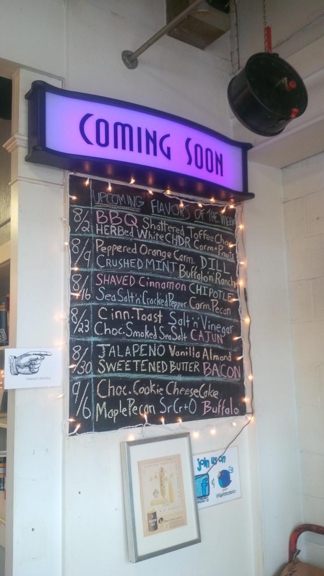 COMING SOON
UPCOMING FLAVORS OF THE WEEK
8/2 BBQ Shattered Toffee Choc
HERBed White CHDR Carm
8/9 Peppered Orange Carm. DILL
CRUSHED MINT Buffalo'n Ranch
8/16 SHAVED Cinnamon CHIPOTLE
Sea Salt'n'Cracked Pepper Carm. Pecan
8/23 Cinn. Toast Salt'n'Vinegar
Choc. Smoked Sea Salt CAJUN
8/30 JALAPEÑO Vanilla Almond
SWEETENED BUTTER BACON
9/6 Choc. Cookie CheeseCake
Maple Pecan SrCr+O Buffalo
join us on
f